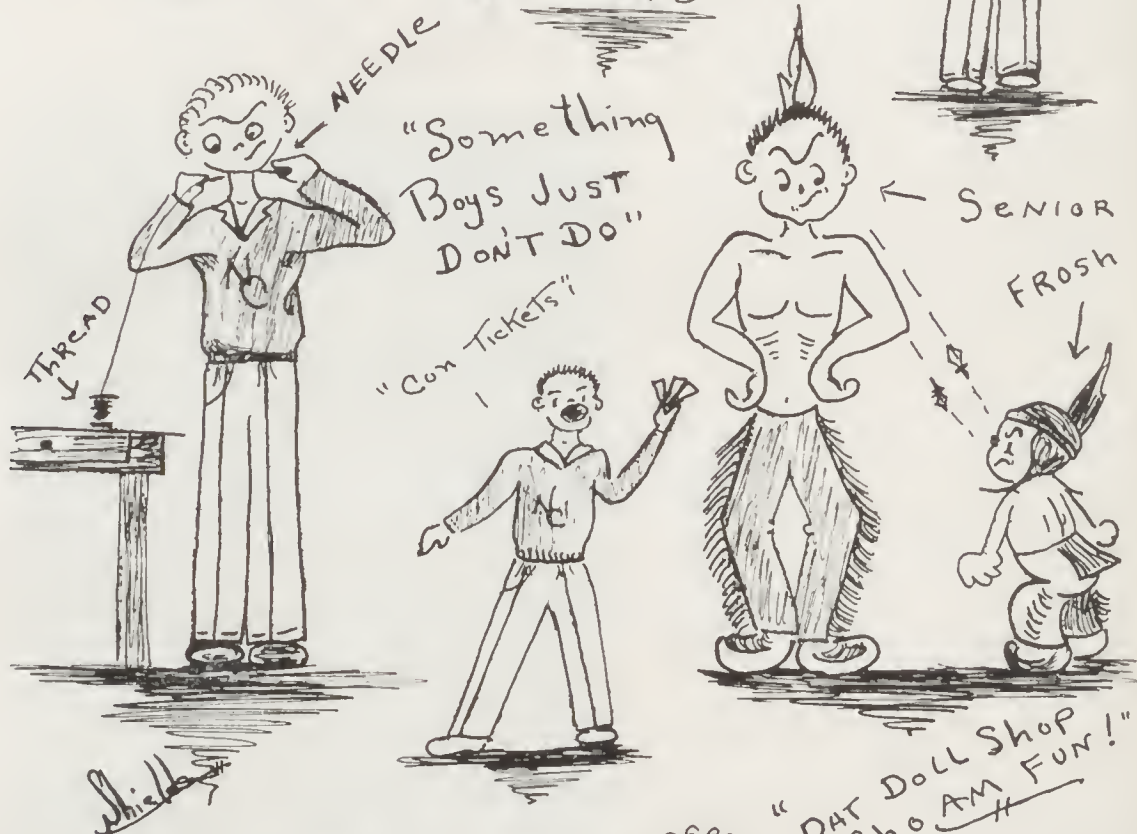 NEEDLE
"Something
Boys Just
DON'T DO"
SENIOR
FROSH
THREAD
"Con Tickets"
NC
NC
Shields
"DAT DOLL SHOP
Sho AM FUN!"